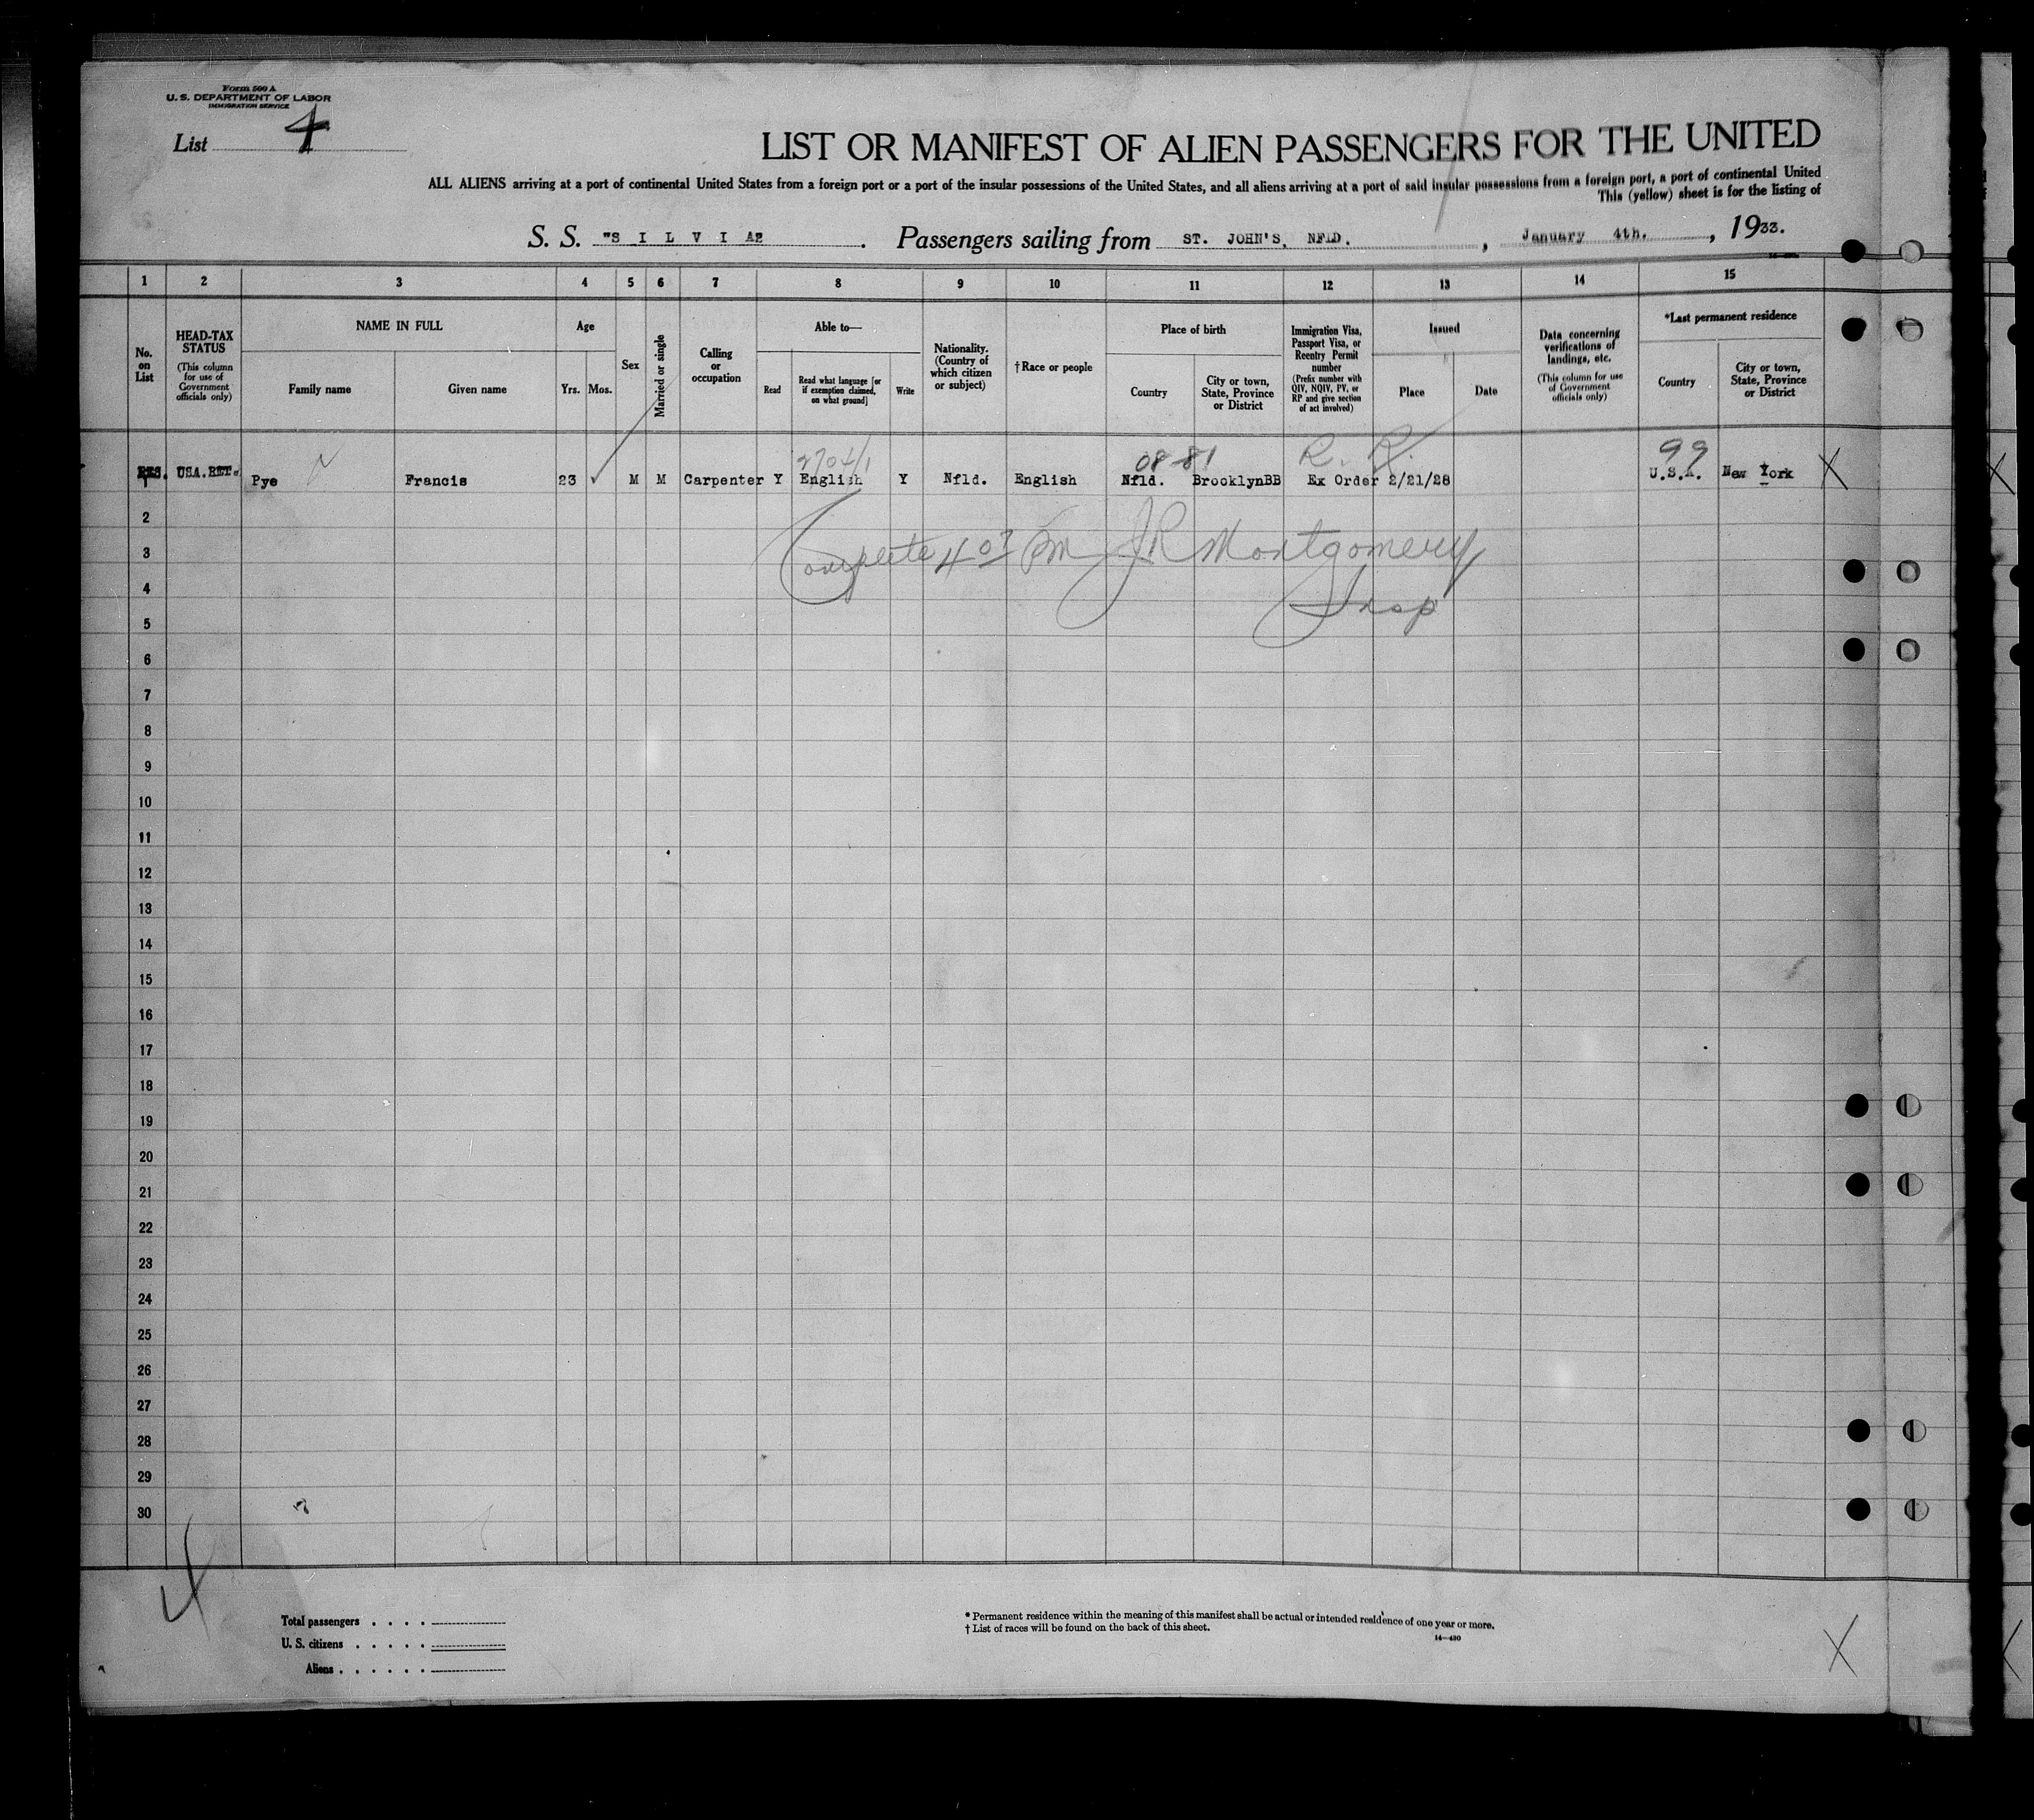 Form 500 A
U. S. DEPARTMENT OF LABOR
IMMIGRATION SERVICE
List 4
LIST OR MANIFEST OF ALIEN PASSENGERS FOR THE UNITED
ALL ALIENS arriving at a port of continental United States from a foreign port or a port of the insular possessions of the United States, and all aliens arriving at a port of said insular possessions from a foreign port, a port of continental United
This (yellow) sheet is for the listing of
S. S. "S I L V I A" . Passengers sailing from ST. JOHN'S, NFLD. , January 4th. , 1933.
1 2 3 4 5 6 7 8 9 10 11 12 13 14 15
No. on List
HEAD-TAX STATUS
(This column for use of Government officials only)
NAME IN FULL
Family name
Given name
Age
Yrs. Mos.
Sex
Married or single
Calling or occupation
Able to—
Read
Read what language [or if exemption claimed, on what ground]
Write
Nationality. (Country of which citizen or subject)
†Race or people
Place of birth
Country
City or town, State, Province or District
Immigration Visa, Passport Visa, or Reentry Permit number
(Prefix number with QIV, NQIV, PV, or RP and give section of act involved)
Issued
Place
Date
Data concerning verifications of landings, etc.
(This column for use of Government officials only)
*Last permanent residence
Country
City or town, State, Province or District
08-81 R. R. 99
1 USA.RET. Pye Francis 23 M M Carpenter Y English Y Nfld. English Nfld. BrooklynBB Ex Order 2/21/28 U.S.A. New York X
2
Complete 4 03 PM J R Montgomery
3
4
Insp
5
6
7
8
9
10
11
12
13
14
15
16
17
18
19
20
21
22
23
24
25
26
27
28
29
30
4
Total passengers . . . .
U. S. citizens . . . . .
Aliens . . . . . .
* Permanent residence within the meaning of this manifest shall be actual or intended residence of one year or more.
† List of races will be found on the back of this sheet.
14—430
X